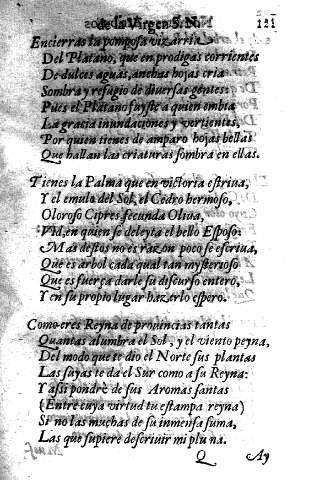 de la Virgen S. N. 121
Encierras la pomposa vizarria
Del Platano, que en prodigas corrientes
De dulces aguas, anchas hojas cria
Sombra y refugio de diuersas gentes:
Pues el Platano fuyste a quien embia
La gracia inundaciones y vertientes,
Por quien tienes de amparo hojas bellas
Que hallan las criaturas sombra en ellas.
Tienes la Palma que en victoria estriua,
Y el emulo del Sol, el Cedro hermoso,
Oloroso Cipres, fecunda Oliua,
Vid, en quien se deleyta el bello Esposo:
Mas destos no es razon poco se escriua,
Que es arbol cada qual tan mysterioso
Que es fuerça darle su discurso entero,
Y en su propio lugar hazerlo espero.
Como eres Reyna de prouincias tantas
Quantas alumbra el Sol, y el viento peyna,
Del modo que te dio el Norte sus plantas
Las suyas te da el Sur como a su Reyna:
Y assi pondrè de sus Aromas santas
(Entre cuya virtud tu estampa reyna)
Si no las muchas de su inmensa suma,
Las que supiere descriuir mi pluna.
Q Ay